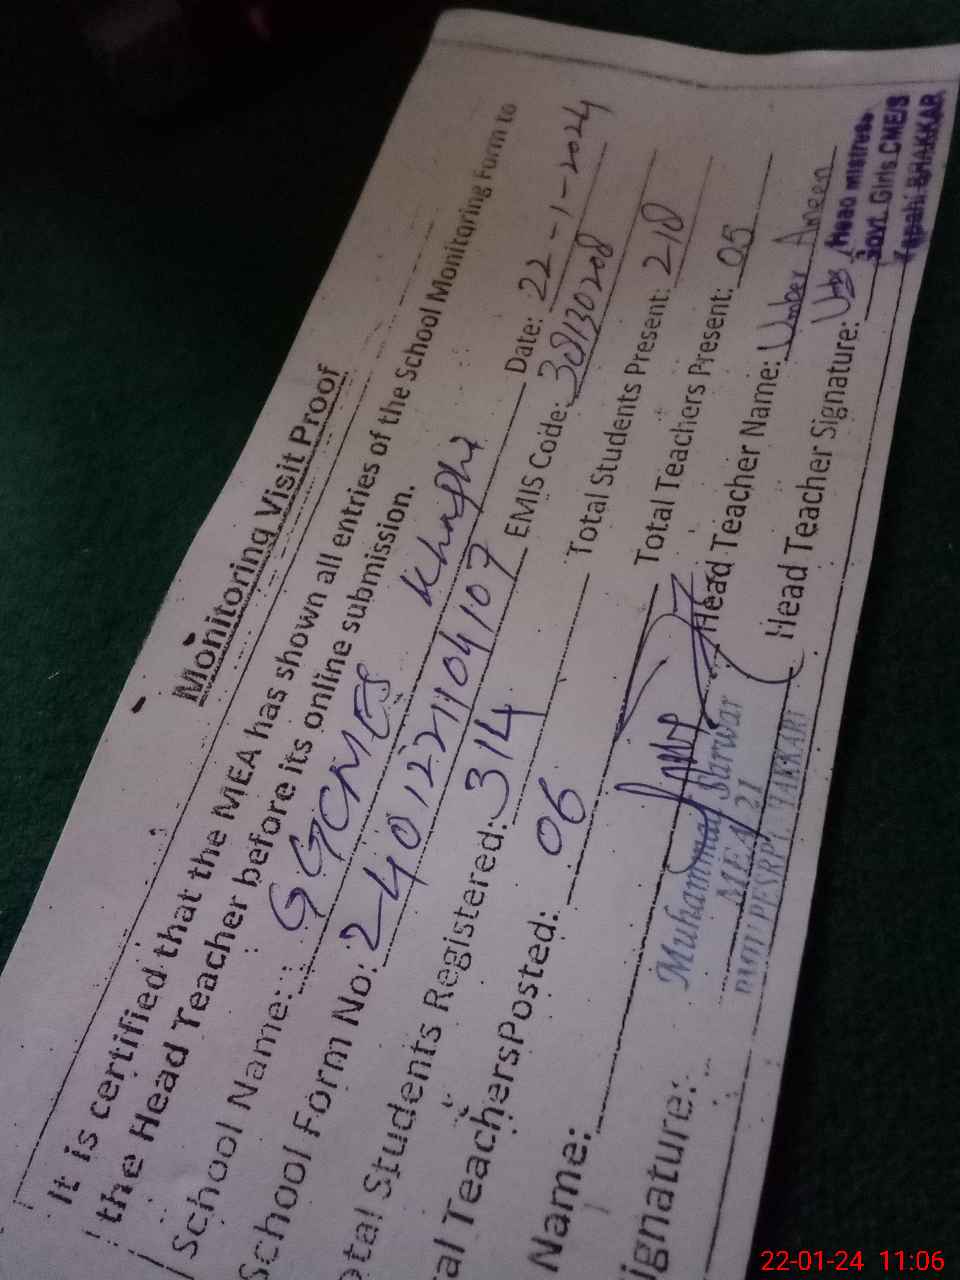 Monitoring Visit Proof
It is certified that the MEA has shown all entries of the School Monitoring Form to
the Head Teacher before its online submission.
School Name: GGCMES Date: 22-1-2024
School Form No: EMIS Code: 38130208
otal Students Registered: 314 Total Students Present: 218
al TeachersPosted: 06 Total Teachers Present: 05
Name: Head Teacher Name: Umber Ameen
ignature: Head Teacher Signature:
Muhammad Sarwar
MEA 21
Head Mistress
Govt. Girls CME/S
BHAKKAR
22-01-24 11:06